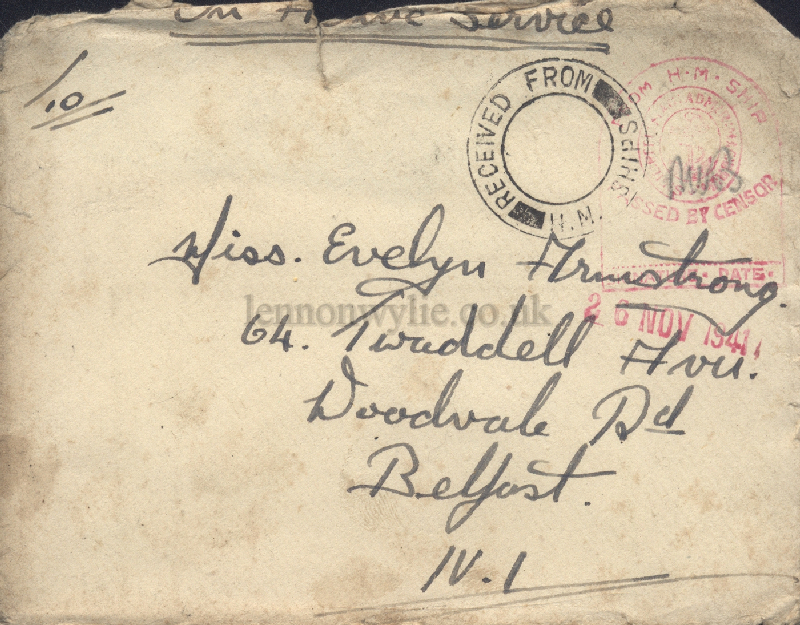 On Active Service
10
RECEIVED FROM H.M. SHIPS
FROM H·M·SHIP
PASSED BY CENSOR
DATE·
26 NOV 1941
Miss. Evelyn Armstrong.
64. Twaddell Avu.
Woodvale Rd
Belfast.
N.I
lennonwylie.co.uk